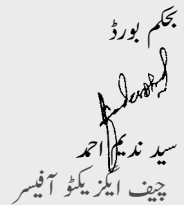 بحکم بورڈ
سید ندیم احمد
چیف ایگزیکٹو آفیسر